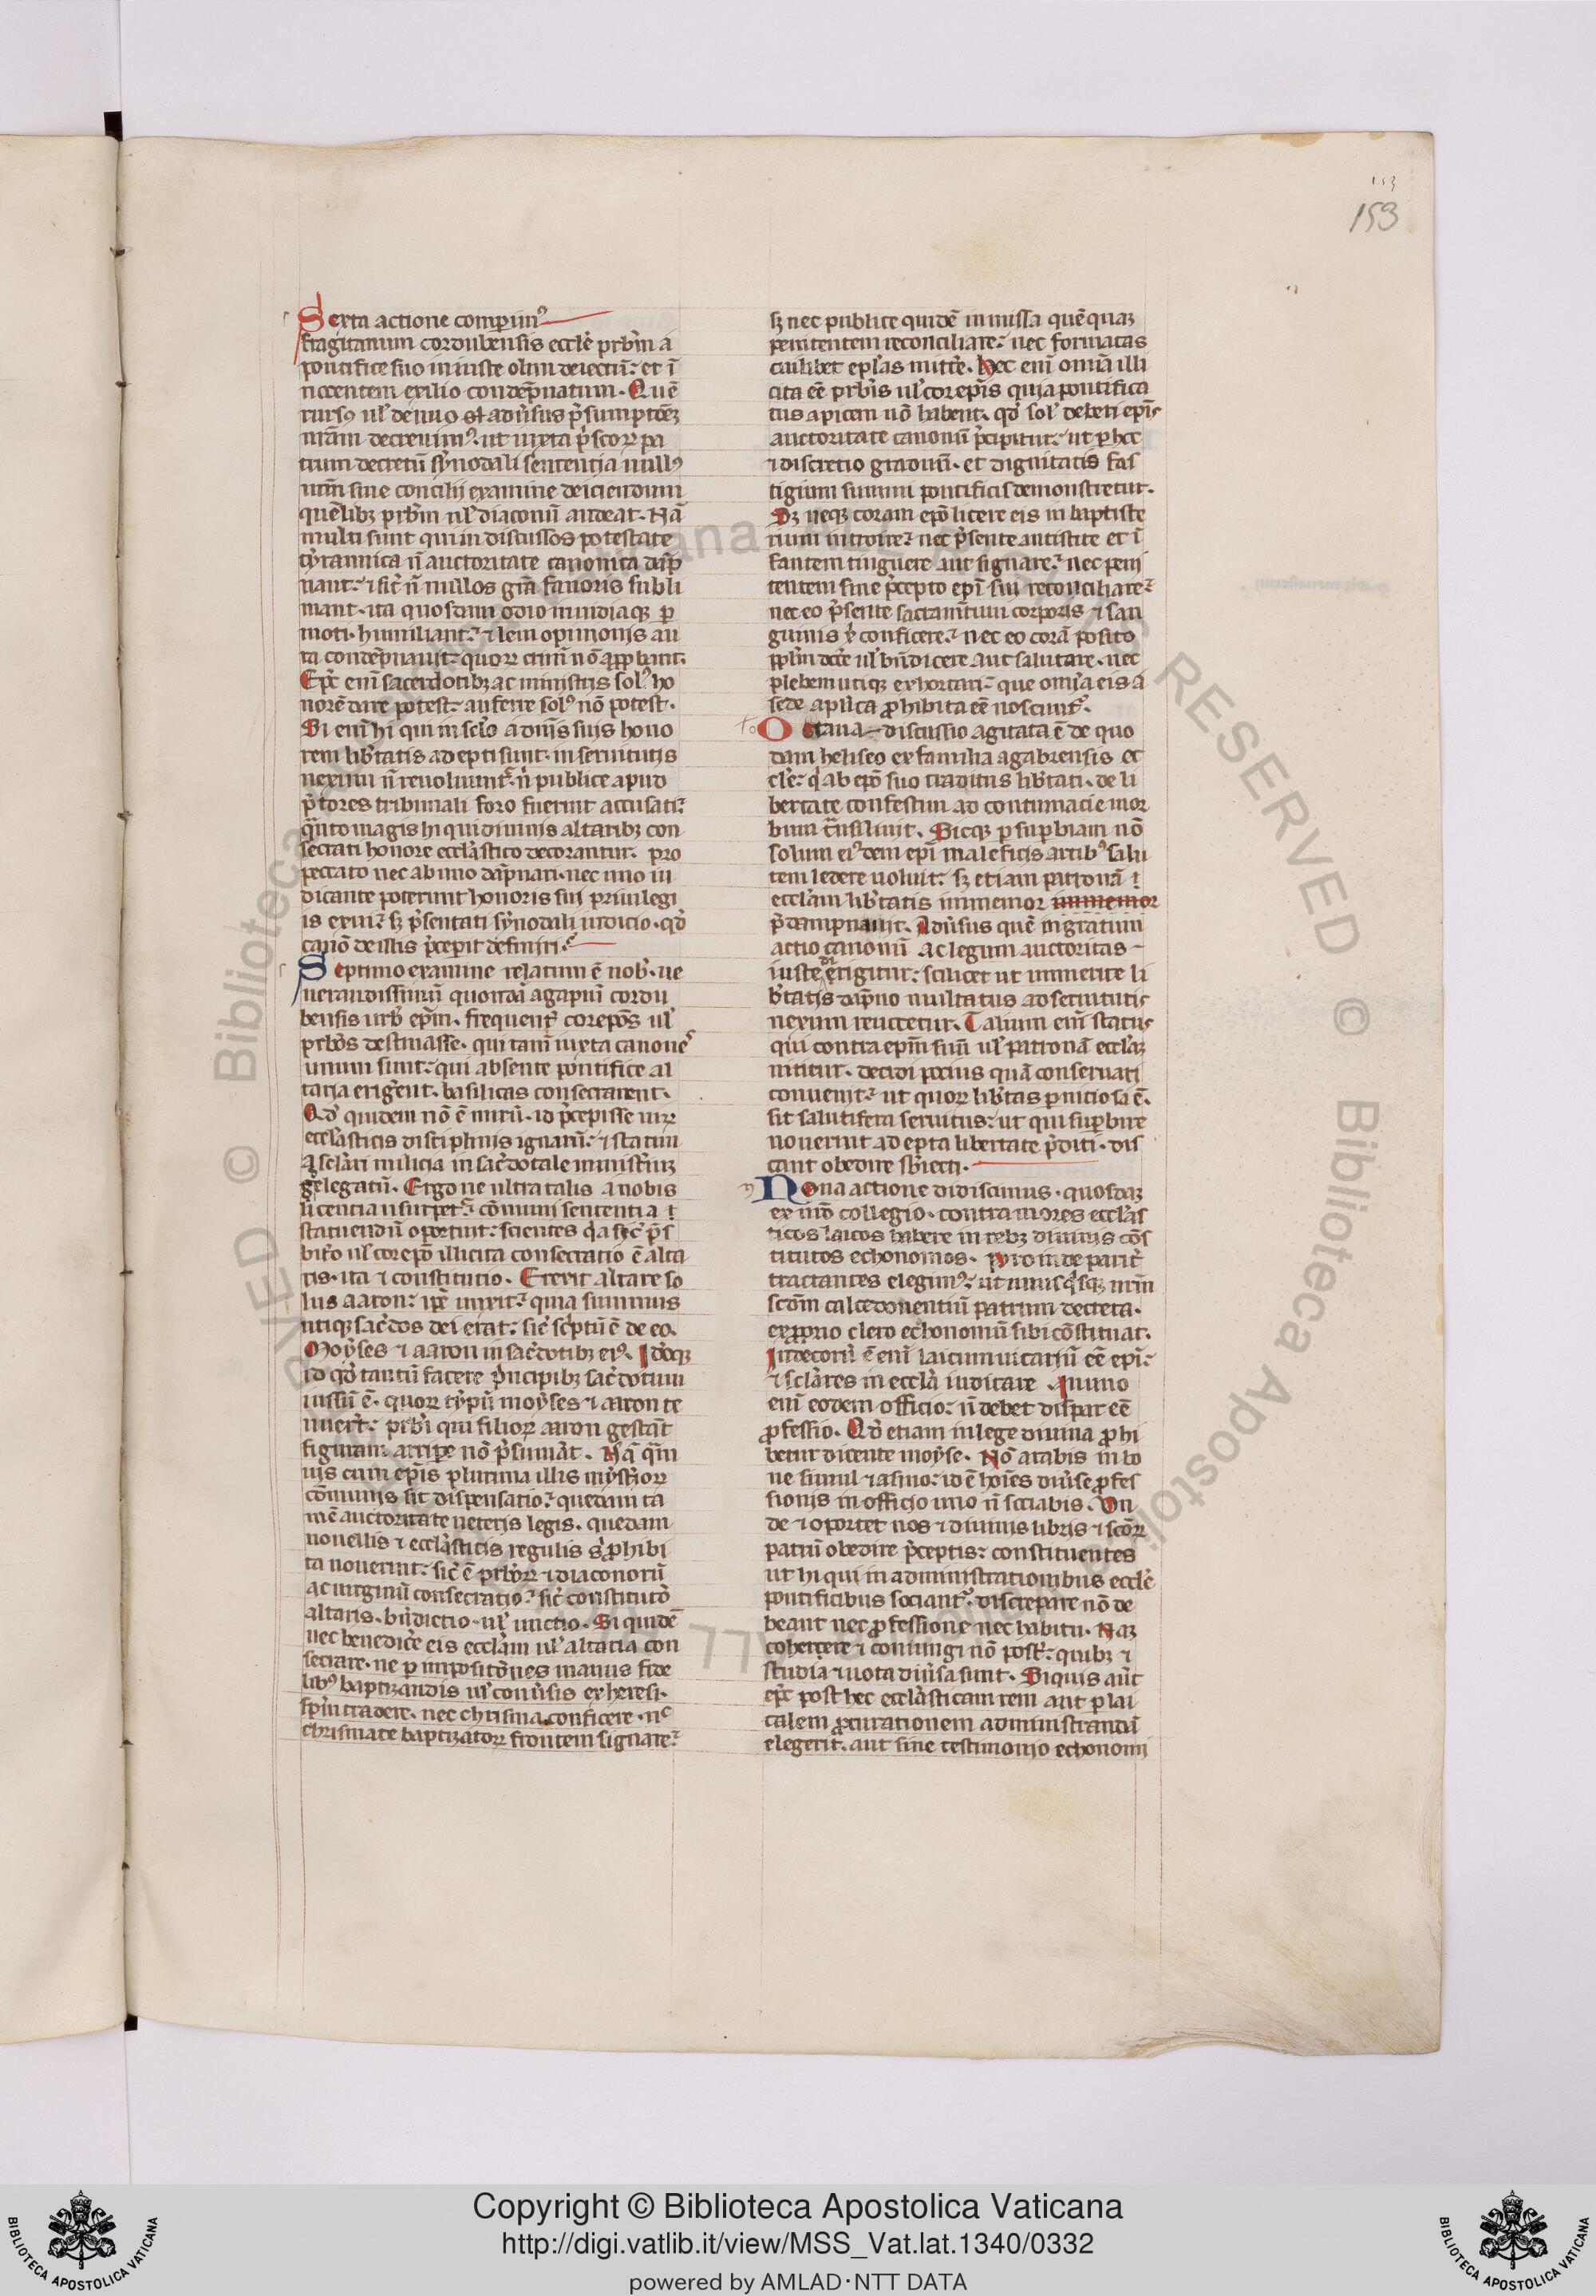 153
153
Sexta actione comperimꝰ
fragitanum cordubensis eccle͞ prb͞rm a
pontifice suo iniuste olim deiectu͞ : et i͞
nocentem exilio conde͞pnatum. Que͞
rursꝰ ul̕ denuo
nia͞m decreuimꝰ. ut iuxta pͥscoꝝ pa
trum decretu͞ synodali sententia nullꝰ
nr͞m sine concilij examine deiciendum
que͞libꝫ prb͞rm ul̕ diaconu͞ audeat. Na͞
multi sunt qui indiscussos potestate
tyrannica n͞ auctoritate canonica da͞p
nant : ⁊ sic͛ n͞ nullos gr͞a fauoris subli
mant. ita quosdam odio inuidiaqꝫ ꝑ
moti. humiliant : ⁊ leui opinionis au
ra conde͞pnant : quoꝝ crim͞ no͞ approbant.
Ep͞c eni͞ sacerdotibꝫ ac ministris solꝰ ho
nore͞ dare potest : auferre solꝰ no͞ potest.
Si eni͞ hi qui in sclo͞ a dn͞is suis hono
rem lib͛tatis adepti sunt. in seruitutis
nexum n͞ reuoluunt͛ : n͞ publice apud
p͛tores tribunali foro fuerint accusati :
qͣnto magis hi qui diuinis altaribꝫ con
secrati honore eccl̕astico decorantur. pro
peccato nec ab uno da͞pnari. nec uno iu
dicante poterunt honoris sui priuilegi
is exui : sꝫ p͛sentati synodali iudicio. qd͛
cano͞ de illis p͛cepit definiri.
Septimo examine relatum e͞ nob͛. ue
nerandissimu͞ quonda͞ agapiu͞ cordu
bensis urb͛ ep͞m. frequent͛ corepo͞s ul̕
prb͞ros destinasse. qui tam͞ iuxta canoneˢ
unum sunt : qui absente pontifice al
taria erig͛ent. basilicas consecrarent.
Qd͛ quidem no͞ e͞ miru͞. id p͛cepisse uiꝝ
eccl̕asticis disciplinis ignaru͞ : ⁊ statim
a scl̕ari milicia in sac͛dotale minist͛iuꝫ
gelegatu͞. Ergo ne ultra talis a nobis
licentia usurpet͛. co͞muni sententia
statuendu͞ oportuit : scientes q͛a sic͛ p͛s
bit͛o ul̕ corepo͞ illicita consecratio e͞ alta
ris. ita ⁊ constitutio. Erexit altare so
lus aaron : ip͞e unxit : quia summus
utiqꝫ sac͛dos dei erat : sic͛ sc͛ptu͞ e͞ de eo.
Moyses ⁊ aaron in sac͛dotibꝫ eiꝰ. Id͛oqꝫ
id qd͛ tantu͞ facere p͛ncipibꝫ sac͛dotum
iussu͞ e͞. quoꝝ typu͞ moyses ⁊ aaron te
nuer͛t : prb͞ri qui filioꝝ aaron gesta͞t
figuram arripe no͞ p͛suma͞t. Na͞ qͣm
uis cum ep͞is plurima illis myst͛ioꝝ
co͞munis sit dispensatio : quedam ta
me͞ auctoritate ueteris legis. quedam
nouellis ⁊ eccl̕asticis regulis s͛ ꝓhibi
ta nouerint : sic͛ e͞ prb͞roꝝ ⁊ diaconoru͞
ac uirginu͞ consecratio : sic͛ constituto͛
altaris. bn͞dictio. ul̕ unctio. Si quide͞
nec benedic͛e eis eccl̕am ul̕ altaria con
secrare. ne ꝑ imposito͛nes manus fide
libꝰ baptizandis ul̕ conu͛sis ex heresi.
sp͞m tradere. nec chrisma conficere. nᶜ
chrismate baptizatoꝝ frontem signare :
sꝫ nec publice quide͞ in missa que͞quaꝫ
penitentem reconciliare : nec formatas
cuilibet ep̕las mitt͛e. Hec eni͞ omi͞a illi
cita ee͞ prb͞ris ul̕ corep͞is quia pontifica
tus apicem no͞ habent. qd͛ solꝰ deberi ep͞is
auctoritate canonu͞ p͛cipitur : ut ꝑ hec
⁊ discretio graduu͞. et dignitatis fas
tigium summi pontificis demonstretur.
Sꝫ neqꝫ coram epo͞ licere eis in baptiste
rium introire : nec p͛sente antistite et i͞
fantem tinguere aut signare : nec peni
tentem sine p͛cepto ep͞i sui reconciliare :
nec eo p͛sente sacrame͞tum corporis ⁊ san
guinis x͛ conficere : nec eo cora͞ posito
ppl̕m doc͛e ul̕ bn͞dicere aut salutare. nec
plebem utiqꝫ exhortari : que omi͞a eis a
sede ap̕lica ꝓhibita ee͞ noscunt͛.
to Octaua discussio agitata e͞ de quo
dam heliseo ex familia agabrensis ec
cle͛ : q͛ ab epo͞ suo traditus lib͛tati. de li
bertate confestim ad contumacie mor
bum tͣnsiliuit. Sicqꝫ ꝑ suꝑbiam no͞
solum eiꝰdem ep͞i maleficis artibꝰ salu
tem ledere uoluit : sꝫ etiam patrona͞
eccl̕am lib͛tatis immemor immemor
p͛dampnauit. Adu͛sus que͞ ingratum
actio canonu͞ ac legum auctoritas
iuste erigitur : scilicet ut immerite li
b͛tatis da͞pno multatus ad seruitutis
nexum reuocetur. Talium eni͞ status
qui contra ep͞m suu͞ ul̕ patrona͞ eccl̕aꝫ
nititur. decidi pocius qua͞ conseruari
conuenit : ut quoꝝ lib͛tas perniciosa e͞.
sit salutifera seruitus : ut qui suꝑbire
nouerint adepta libertate p͛diti. dis
cant obedire sb͛iecti.
Nona actione didiscimus. quosdaꝫ
ex nr͞o collegio. contra mores eccl̕as
ticos laicos habere in rebꝫ diuinis co͞s
titutos echonomos. Proinde parit͛
tractantes elegimꝰ : ut unusq͛sqꝫ nr͞m
scd͞m calcedonentiu͞ patrum decreta.
ex ꝓprio clero echonomu͞ sibi co͞stituat.
Indecoru͞ e͞ eni͞ laicum uicariu͞ ee͞ ep͞i :
⁊ scl̕ares in eccl̕a iudicare. In uno
eni͞ eodem officio : n͞ debet dispar ee͞
ꝓfessio. Qd͛ etiam in lege diuina ꝓhi
betur dicente moyse. No͞ arabis in bo
ue simul ⁊ asino : id e͞ hoi͞es diu͛se ꝓfes
sionis in officio uno n͞ sociabis. Un
de ⁊ oportet nos ⁊ diuinis libris ⁊ sco͞ꝝ
patru͞ obedire p͛ceptis : constituentes
ut hi qui in administrationibus eccle͞
pontificibus sociant͛. discrepare no͞ de
beant nec ꝓfessione nec habitu. Naꝫ
coherere ⁊ coniungi no͞ post͛ : quibꝫ ⁊
studia ⁊ uota diu͛sa sunt. Siquis aut͛
ep͞c post hec eccl̕asticam rem aut ꝑ lai
calem ꝓcurationem administranda͞
elegerit. aut sine testimonio echonomi
Copyright © Biblioteca Apostolica Vaticana
http://digi.vatlib.it/view/MSS_Vat.lat.1340/0332
powered by AMLAD·NTT DATA